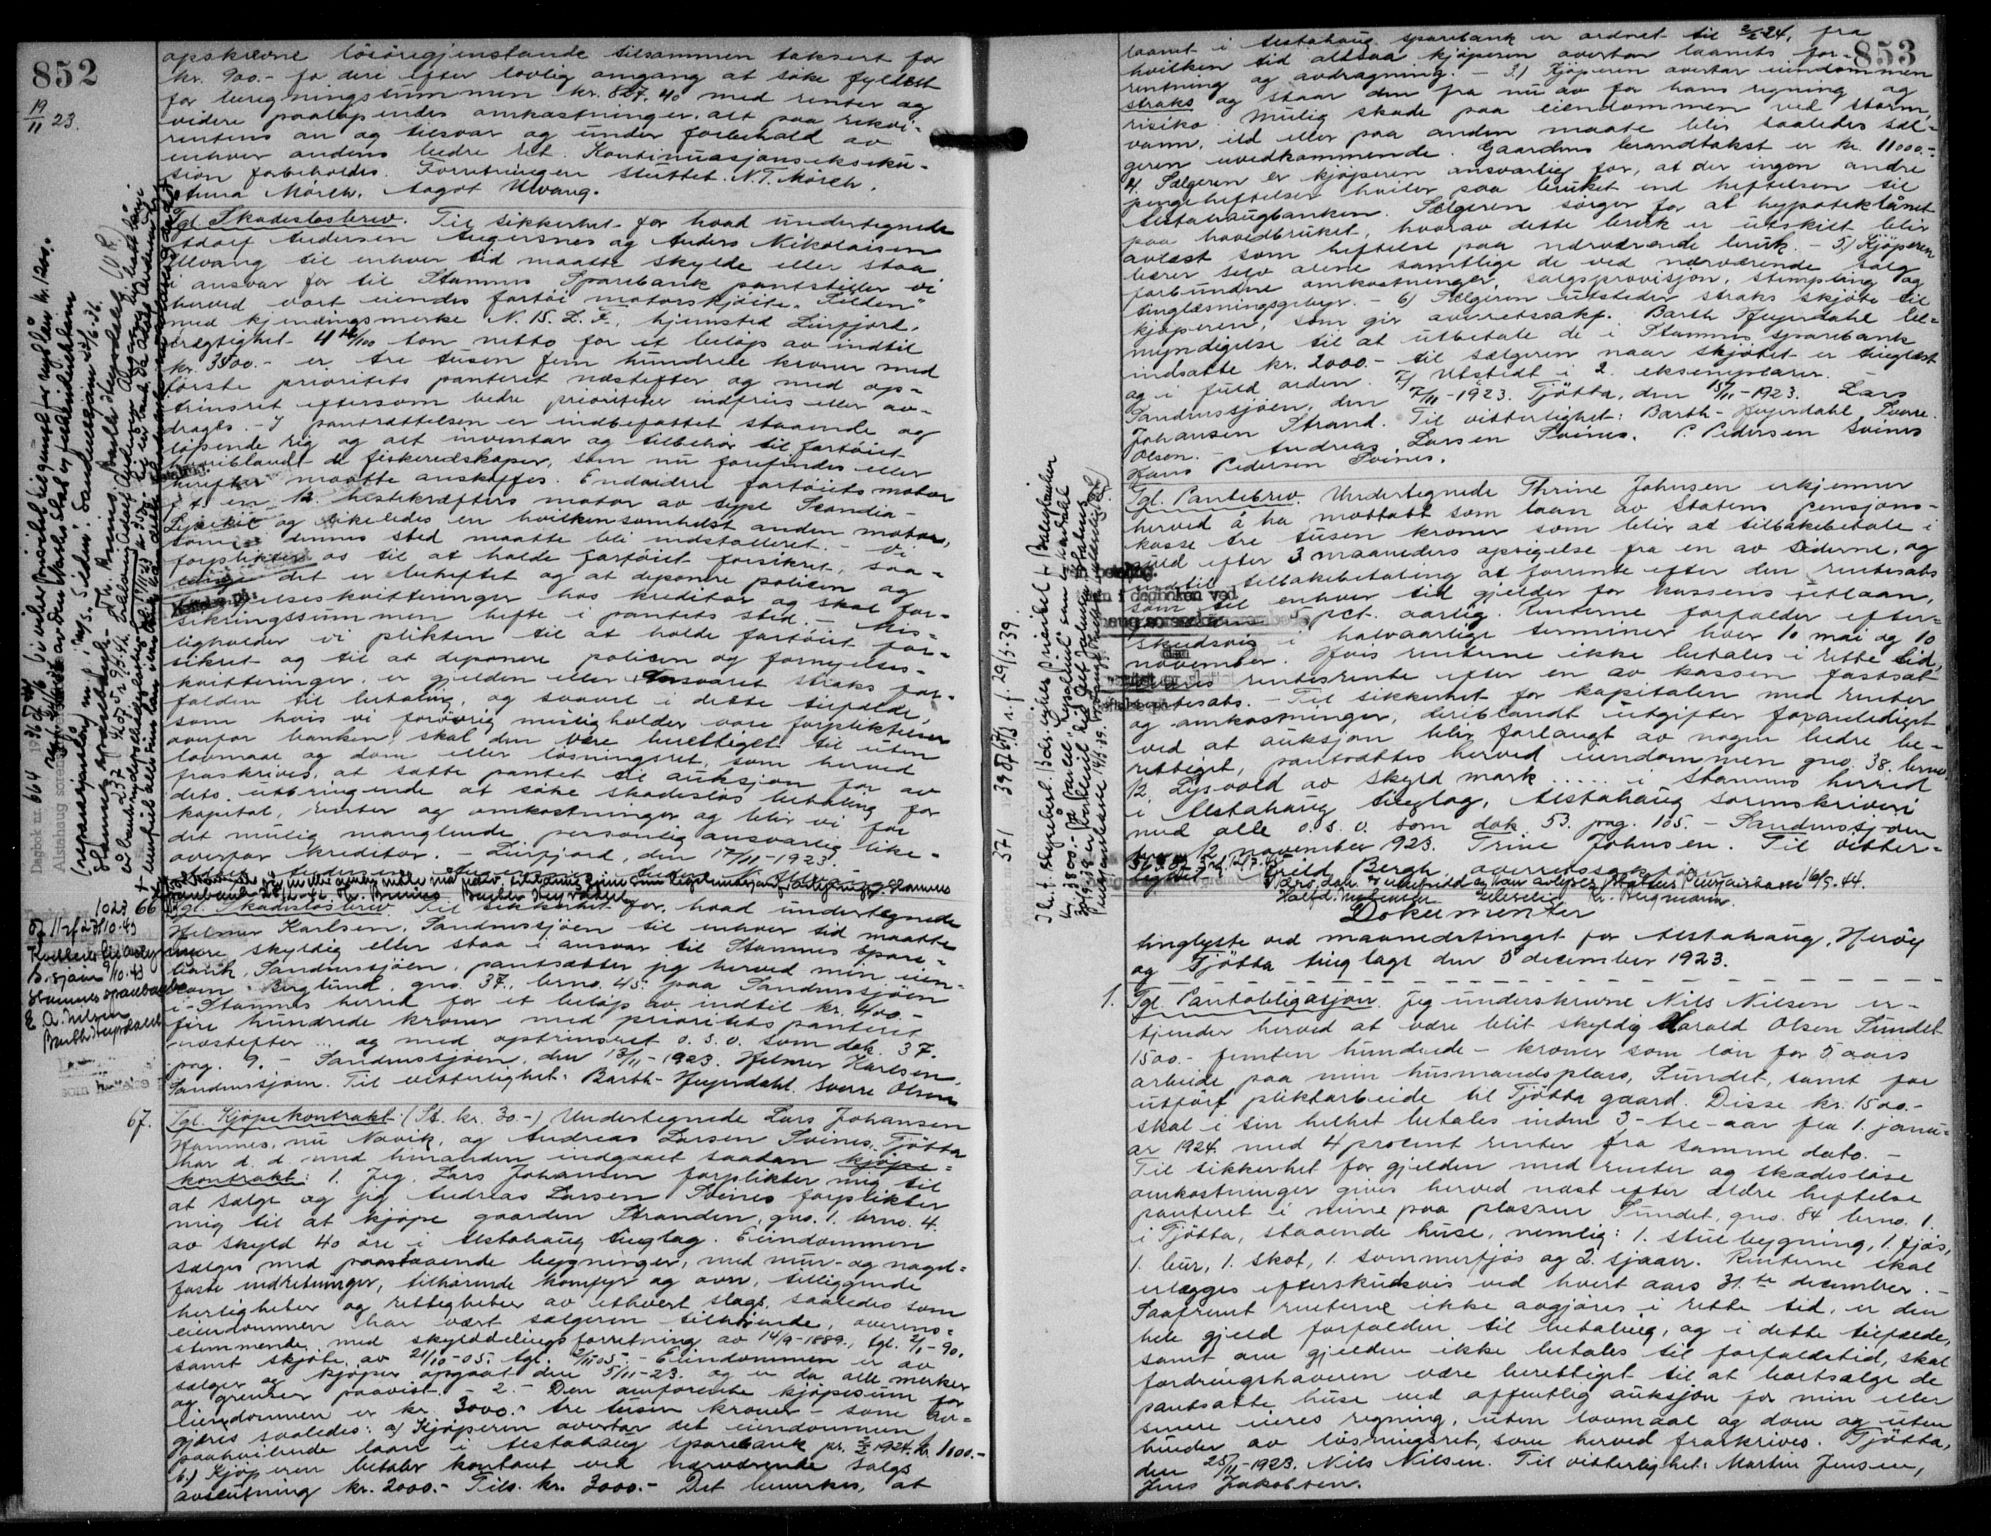 852
19/11 23.
opskrevne løsøregjenstande tilsammen taksert for
kr. 900.- fo deri efter lovlig omgang at søke fyldest
for beregningssummen kr. 827.40 med renter og
videre paaløpendes omkostninger, alt paa rekvi-
rentens an og tilsvar og under forbehold av
enhver andens bedre ret. Kontinuasjonseksku-
sjon forbeholdes. Forretningen sluttet. N. T. Mörch.
Mörch. Aagot Ulvang.
Tgl. Skadesløsbrev. Til sikkerhet for hvad undertegnede
Adolf Andersen Angersnes og Anders Nikolaisen
Ulvang til enhver tid maatte skylde eller staa
i ansvar for til Stamnes Sparebank pantstiller vi
herved vort eiendes fartøi motorskjøite "Silden"
med kjendingsmerke N. 15. L. F., hjemsted Leirfjord,
drægtighet 4 /100 ton netto for et beløp av indtil
kr. 3500.- er tre tusen fem hundrede kroner med
første prioritets panteret næstefter og med op-
trinsret eftersom bedre prioriteter indfries eller av-
drages. - I pantsættelsen er indbefattet staaende og
løpende rig og alt inventar og tilbehør til fartøiet
heriblandt de fiskeredskaper, som nu forefindes eller
herefter maatte anskaffes. Endvidere fartøiets motor
en 12 hestekræfters motor av type Scandia
og likeledes en hvilkensomhelst anden motor,
som i dennes sted maatte bli indstalleret. - Vi
forplikter os til at holde fartøiet forsikret, saa-
længe det er beheftet og at deponere policen og
fornyelseskvitteringer hos kreditor og skal for-
sikringssummen hefte i pantets sted. - Mis-
ligholder vi plikten til at holde fartøiet for-
sikret og til at deponere policen og fornyelses-
kvitteringer, er gjelden eller ansvaret straks for-
falden til betaling, og saavel i dette tilfælde,
som hvis vi forøvrig misligholder vore forpliktelser
overfor banken, skal den være berettiget til uten
lovmaal og dom eller løsningsret, som herved
fraskrives, at sætte pantet til auksjon for av
dets utbringende at søke skadesløs betaling for
kapital, renter og omkostninger og blir vi for
det mulig manglende personlig ansvarlig like-
overfor kreditor. - Leirfjord, den 17/11-1923.
66
Tgl. Skadesløsbrev. Til sikkerhet for, hvad undertegnede
Hilmer Karlsen, Sandnessjøen til enhver tid maatte
være skyldig eller staa i ansvar til Stamnes Spare-
bank, Sandnessjøen, pantsætter jeg herved min eien-
dom Berglund, gno. 37, brno. 45 paa Sandnessjøen
i Stamnes herred for et beløp av indtil kr. 400.-
fire hundrede kroner med prioritets panteret
næstefter ... og med optrinsret o. s. v. som dok. 37.
pag. 9. - Sandnessjøen, den 13/11-1923. Hilmer Karlsen,
Sandnessjøen. Til vitterlighet: Barth-Heyerdahl. Sverre Olsen
67.
Tgl. Kjøpekontrakt. (St. kr. 30-) Undertegnede Lars Johansen
Hamnes, nu Novik, og Andreas Larsen Svines, Tjøtta
har d. d. med hinanden indgaaet saadan kjøpe-
kontrakt: 1. Jeg, Lars Johansen forplikter mig til
at sælge og jeg Andreas Larsen Svines forplikter
mig til at kjøpe gaarden Stranden, gno. 1. brno. 4.
av skyld 40 øre i Alstahaug tinglag. Eiendommen
sælges med paastaaende bygninger, med mur- og nagel-
faste indretninger, tilhørende komfyr og ovn, tilliggende
herligheter og rettigheter av ethvert slags, saaledes som
eiendommen har vært sælgeren tilhørende, overens-
stemmende med skylddelingsforretning av 14/9-1889, tgl. 2/1-90,
samt skjøte av 21/10-05. tgl. 2/11 05. - Eiendommen er av
sælger og kjøper opgaat den 5/11-23. og er da alle merker
og grenser paavist. - 2. - Den omforente kjøpesum for
eiendommen er kr. 3000.- tre tusen kroner - som av-
gjøres saaledes: a) Kjøperen overtar det eiendommen
paahvilende laan i Alstahaug sparebank pr. 2/2 1924 kr. 1000.-
b.) Kjøperen betaler kontant ved nærværende salgs
avslutning kr. 2000.- Tils. kr. 3000.- Det bemerkes, at
853
laanet i Alstahaug sparebank er ordnet til 2/2-24, fra
hvilken tid altsaa kjøperen overtar laanets for-
rentning og avdragning. - 3.) Kjøperen overtar eiendommen
straks og staar den fra nu av for hans regning og
risiko. Mulig skade paa eiendommen ved storm,
vann, ild eller paa anden maate blir saaledes sæl-
geren uvedkommende. Gaardens brandtakst er kr. 11000.-
4. Sælgeren er kjøperen ansvarlig for, at der ingen andre
pengeheftelser hviler paa bruket end heftelsen til
Alstahaugbanken. Sælgeren sørger for at hypoteklånet
paa hovedbruket, hvorav dette bruk er utskilt blir
avlæst som heftelse paa nærværende bruk. - 5.) Kjøperen
bærer selv alene samtlige de ved nærværende salg
forbundne omkostninger, salgsprovisjon, stempling og
tinglæsningsgebyr. - 6) Sælgeren utsteder straks skjøte til
kjøperen, som gir overretssakf. Barth Heyerdahl be-
myndigelse til at utbetale de i Stamnes sparebank
indsatte kr. 2000.- til sælgeren naar skjøtet er tinglæst
og i fuld orden. 7/ Utstedt i 2. eksemplarer. -
Sandnessjøen, den 17/11-1923. Tjøtta, den 15/11-1923. Lars
Johansen Strand. Til vitterlighet: Barth-Heyerdahl, Sverre
Olsen. Andreas Larsen Svines. P. Pedersen Svines
Hans Pedersen Svines.
Tgl. Pantebrev. Undertegnede Thrine Johnsen erkjenner
herved å ha mottatt som laan av Statens Pensjons-
kasse tre tusen kroner som blir at tilbakebetale i
efter 3 maaneders opsigelse fra en av siderne, og
indtil tilbakebetaling at forrente efter den rentesats
som til enhver tid gjelder for kassens utlaan,
pct. aarlig. Renterne forfalder efter-
skudsvis i halvaarlige terminer hver 10 mai og 10
november. Hvis renterne ikke betales i rette tid,
rentesrente efter en av kassen fastsat
rentesats. - Til sikkerhet for kapitalen med renter
og omkostninger, deriblandt utgifter foranlediget
ved at auksjon blir forlangt av nogen bedre be-
rettiget, pantsættes herved eiendommen gno. 38. brno.
12. Lysvold av skyld mark ..... i Stamnes herred
i Alstahaug tinglag, Alstahaug sorenskriveri
med alle o. s. v. som dok. 53. pag. 105. - Sandnessjøen
den 12 november 1923. Trine Johnsen. Til vitter-
lighet: Eield Bergh overretssakfører.
Dokumenter
tinglyste ved maanedstinget for Alstahaug, Herøy
og Tjøtta tinglag den 5 december 1923.
1.
Tgl. Pantobligasjon. Jeg underskrevne Nils Nilsen er-
kjender herved at være blit skyldig Harald Olsen Sundet
1500.- femten hundrede - kroner som løn for 5 aars
arbeide paa min husmandsplass, Sundet, samt for
utført pliktarbeide til Tjøtta gaard. Disse kr. 1500.-
skal i sin helhet betales inden 3-tre-aar fra 1. janu-
ar 1924 med 4 procent renter fra samme dato. -
Til sikkerhet for gjelden med renter og skadesløse
omkostninger gives herved næst efter ældre heftelse
panteret i mine paa plassen Sundet, gno. 84 brno. 1.
i Tjøtta, staaende huse, nemlig: 1. stuebygning, 1. fjøs,
1. bur, 1. skot, 1. sommerfjøs og 2. sjaaer. Renterne skal
erlægges efterskudsvis ved hvert aars 31.te december. -
Saafremt renterne ikke avgjøres i rette tid, er den
hele gjeld forfalden til betaling, og i dette tilfælde,
samt om gjelden ikke betales til forfaldstid, skal
fordringshaveren være berettiget til at bortsælge de
pantsatte huse ved offentlig auksjon for min eller
senere eieres regning, uten lovmaal og dom og uten
hinder av løsningsret, som herved fraskrives. Tjøtta,
den 25/11-1923. Nils Nilsen. Til vitterlighet: Martin Jensen,
Jens Jakobsen.